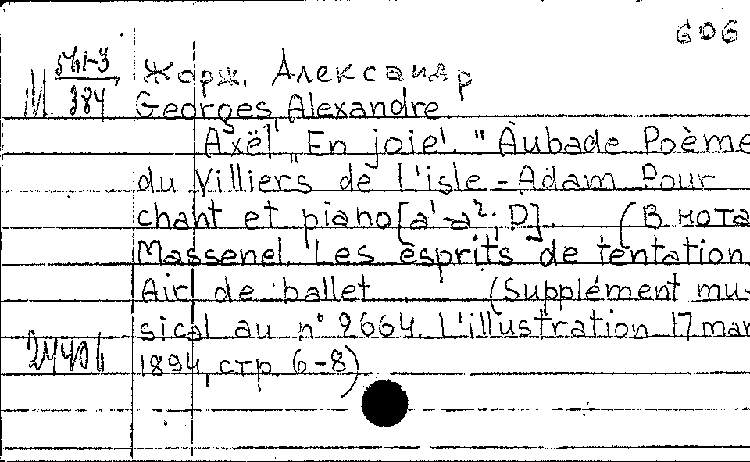 606
М 561-3/384
Жорж, Александр
Georges, Alexandre
Axël. "En joie!" Aubade Poème
du Villiers de l'isle-Adam Pour
chant et piano [a¹-a²; D]. (В нота
Massenel. Les esprits de tentation
Air de ballet (Supplément mu-
sical au n° 2664. L'illustration 17 mar
1894, стр 6-8)